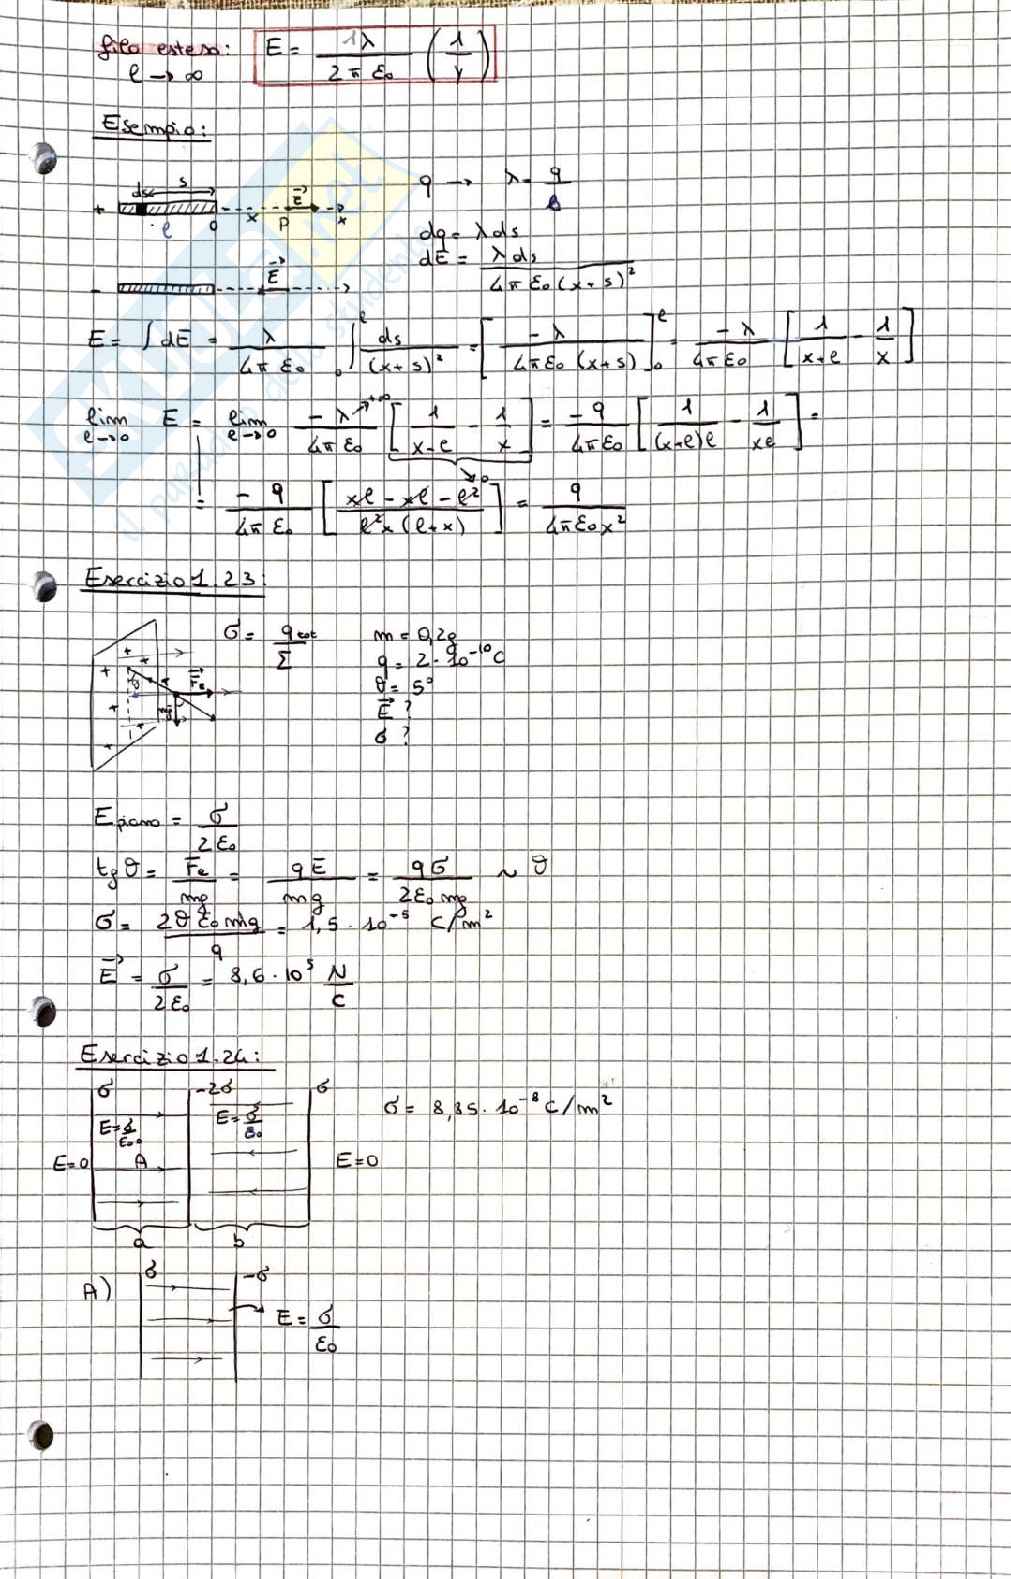 filo esteso: E = 1λ / 2π ε₀ (1/r)
l → ∞
Esempio:
ds s
q → λ = q/l
+ l 0 x P E⃗ x
dq = λ ds
dE = λ ds / 4π ε₀ (x+s)²
- E⃗
E = ∫ dE = λ / 4π ε₀ ∫₀ˡ ds / (x+s)² = [ -λ / 4π ε₀ (x+s) ]₀ˡ = -λ / 4π ε₀ [ 1/x+l - 1/x ]
lim l→0 E = lim l→0 -λ →+∞ / 4π ε₀ [ 1/x-l - 1/x ] →0 = -q / 4π ε₀ [ 1/(x+l)l - 1/xl ] =
= -q / 4π ε₀ [ xl - xl - l² / l²x (l+x) ] = q / 4π ε₀ x²
Esercizio 1.23:
σ = q tot / Σ
m = 0,2g
q = 2 · 10⁻¹⁰ C
θ = 5°
E⃗ ?
σ ?
+ + + + + + + θ F⃗e mg
E piano = σ / 2ε₀
tg θ = Fe / mg = qE / mg = qσ / 2ε₀ mg ~ θ
σ = 2θ ε₀ mg / q = 1,5 · 10⁻⁵ C/m²
E⃗ = σ / 2ε₀ = 8,6 · 10⁵ N/C
Esercizio 1.24:
σ -2σ σ
σ = 8,85 · 10⁻⁸ C/m²
E = σ/ε₀ E = σ/ε₀
E=0 A E=0
a b
A) σ -σ
E = σ / ε₀